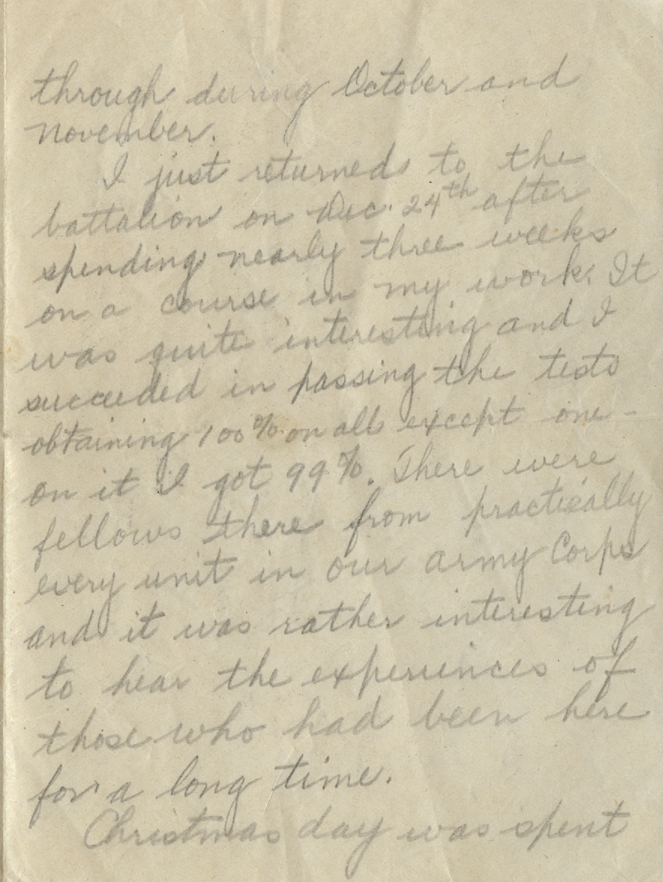 through during October and
november.
I just returned to the
battalion on Dec. 24th after
spending nearly three weeks
on a course in my work. It
was quite interesting and I
succeeded in passing the tests
obtaining 100% on all except one -
on it I got 99%. There were
fellows there from practically
every unit in our army Corps
and it was rather interesting
to hear the experiences of
those who had been here
for a long time.
Christmas day was spent